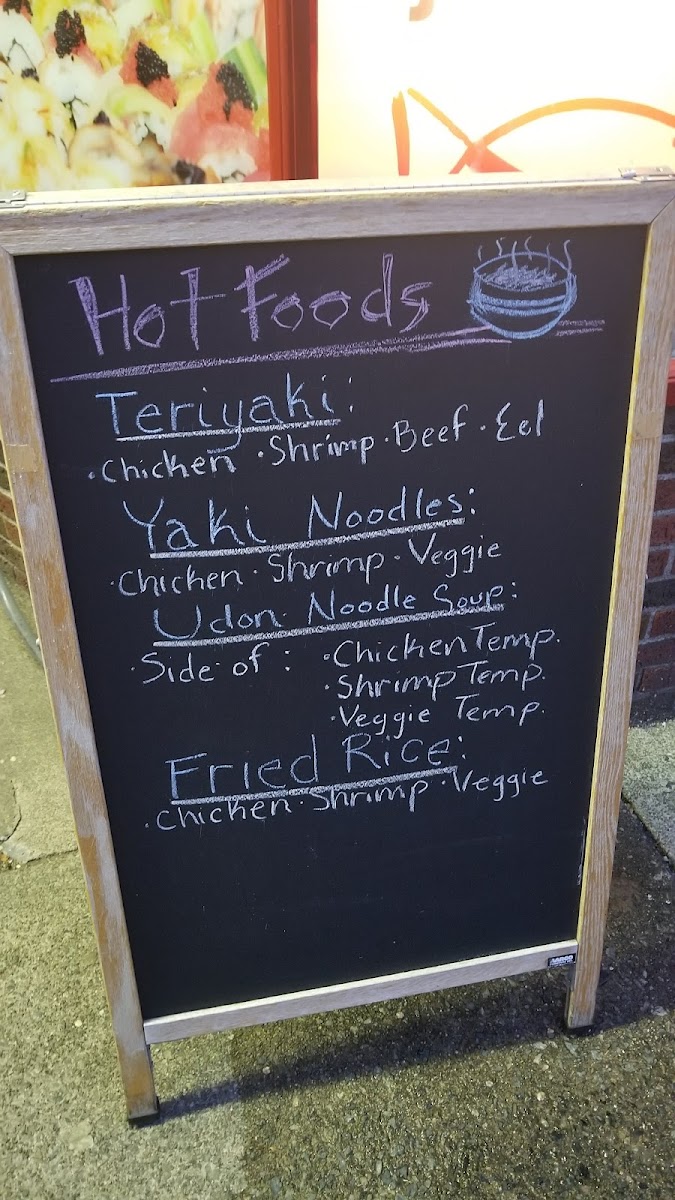 Hot Foods
Teriyaki:
·Chicken ·Shrimp·Beef·Eel
Yaki Noodles:
·Chicken·Shrimp·Veggie
Udon Noodle Soup:
·Side of: ·Chicken Temp.
·Shrimp Temp.
·Veggie Temp.
Fried Rice:
·Chicken·Shrimp·Veggie